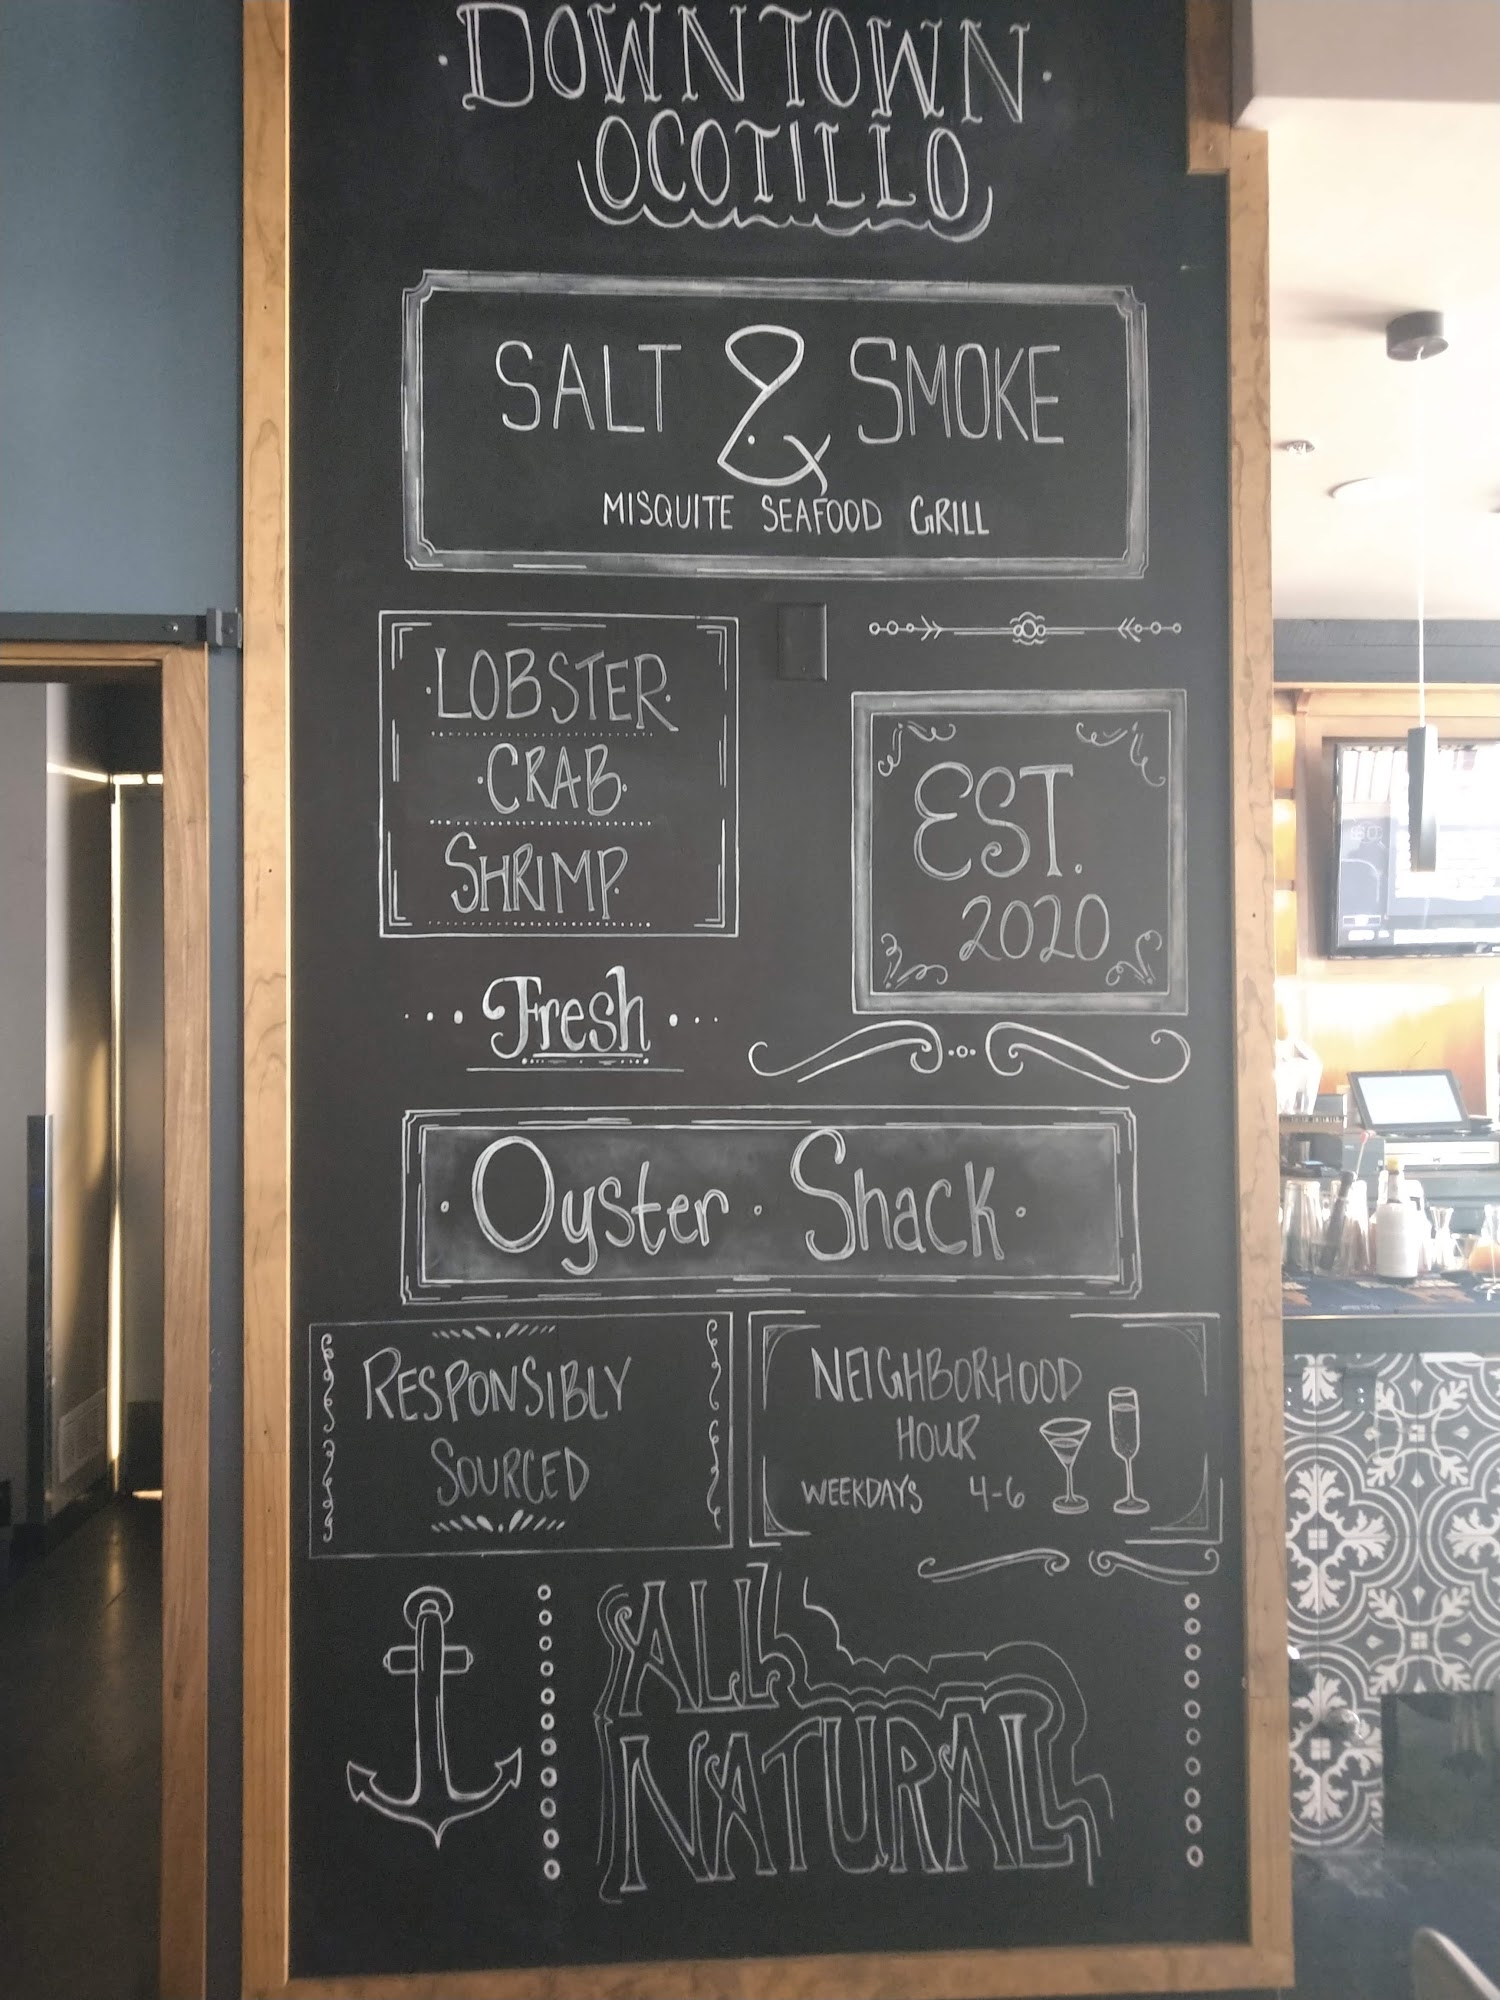 DOWNTOWN
OCOTILLO
SALT & SMOKE
MISQUITE SEAFOOD GRILL
LOBSTER
CRAB
SHRIMP
EST.
2020
Fresh
Oyster Shack
RESPONSIBLY
SOURCED
NEIGHBORHOOD
HOUR
WEEKDAYS 4-6
ALL
NATURAL